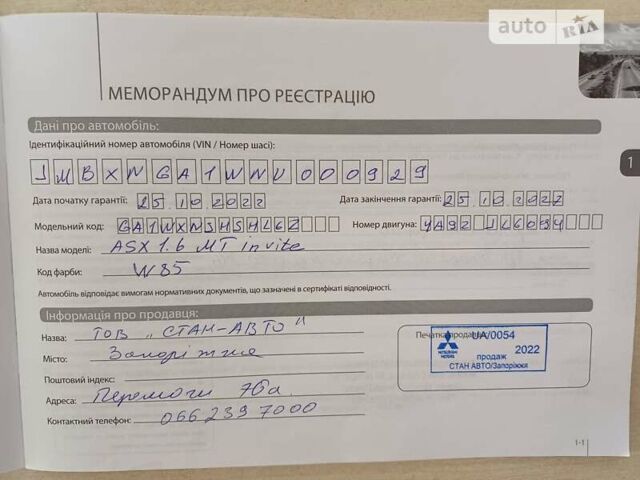 auto RIA
МЕМОРАНДУМ ПРО РЕЄСТРАЦІЮ
Дані про автомобіль:
Ідентифікаційний номер автомобіля (VIN / Номер шасі):
JMBXNGA1WNU000929
Дата початку гарантії: 25.10.2022 Дата закінчення гарантії: 25.10.2027
Модельний код: GA1WXNJHSHL6Z Номер двигуна: 4A92
Назва моделі: ASX 1.6 MT invite
Код фарби: W85
Автомобіль відповідає вимогам нормативних документів, що зазначені в сертифікаті відповідності.
Інформація про продавця:
Назва: ТОВ "СТАН-АВТО"
Місто: Запоріжжя
Поштовий індекс:
Адреса: Перемоги 76а
Контактний телефон: 066 239 7000
Печатка продавця
UA/0054
MITSUBISHI MOTORS
продаж 2022
СТАН АВТО/Запоріжжя
1
1-1